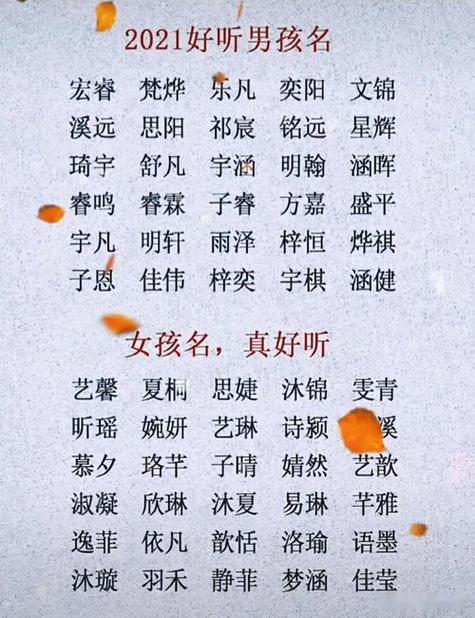 2021好听男孩名
宏睿 梵烨 乐凡 奕阳 文锦
溪远 思阳 祁宸 铭远 星辉
琦宇 舒凡 宇涵 明翰 涵晖
睿鸣 睿霖 子睿 方嘉 盛平
宇凡 明轩 雨泽 梓恒 烨祺
子恩 佳伟 梓奕 宇棋 涵健
女孩名，真好听
艺馨 夏桐 思婕 沐锦 雯青
昕瑶 婉妍 艺琳 诗颍 溪
慕夕 珞芊 子晴 婧然 艺歆
淑凝 欣琳 沐夏 易琳 芊雅
逸菲 依凡 歆恬 洛瑜 语墨
沐璇 羽禾 静菲 梦涵 佳莹